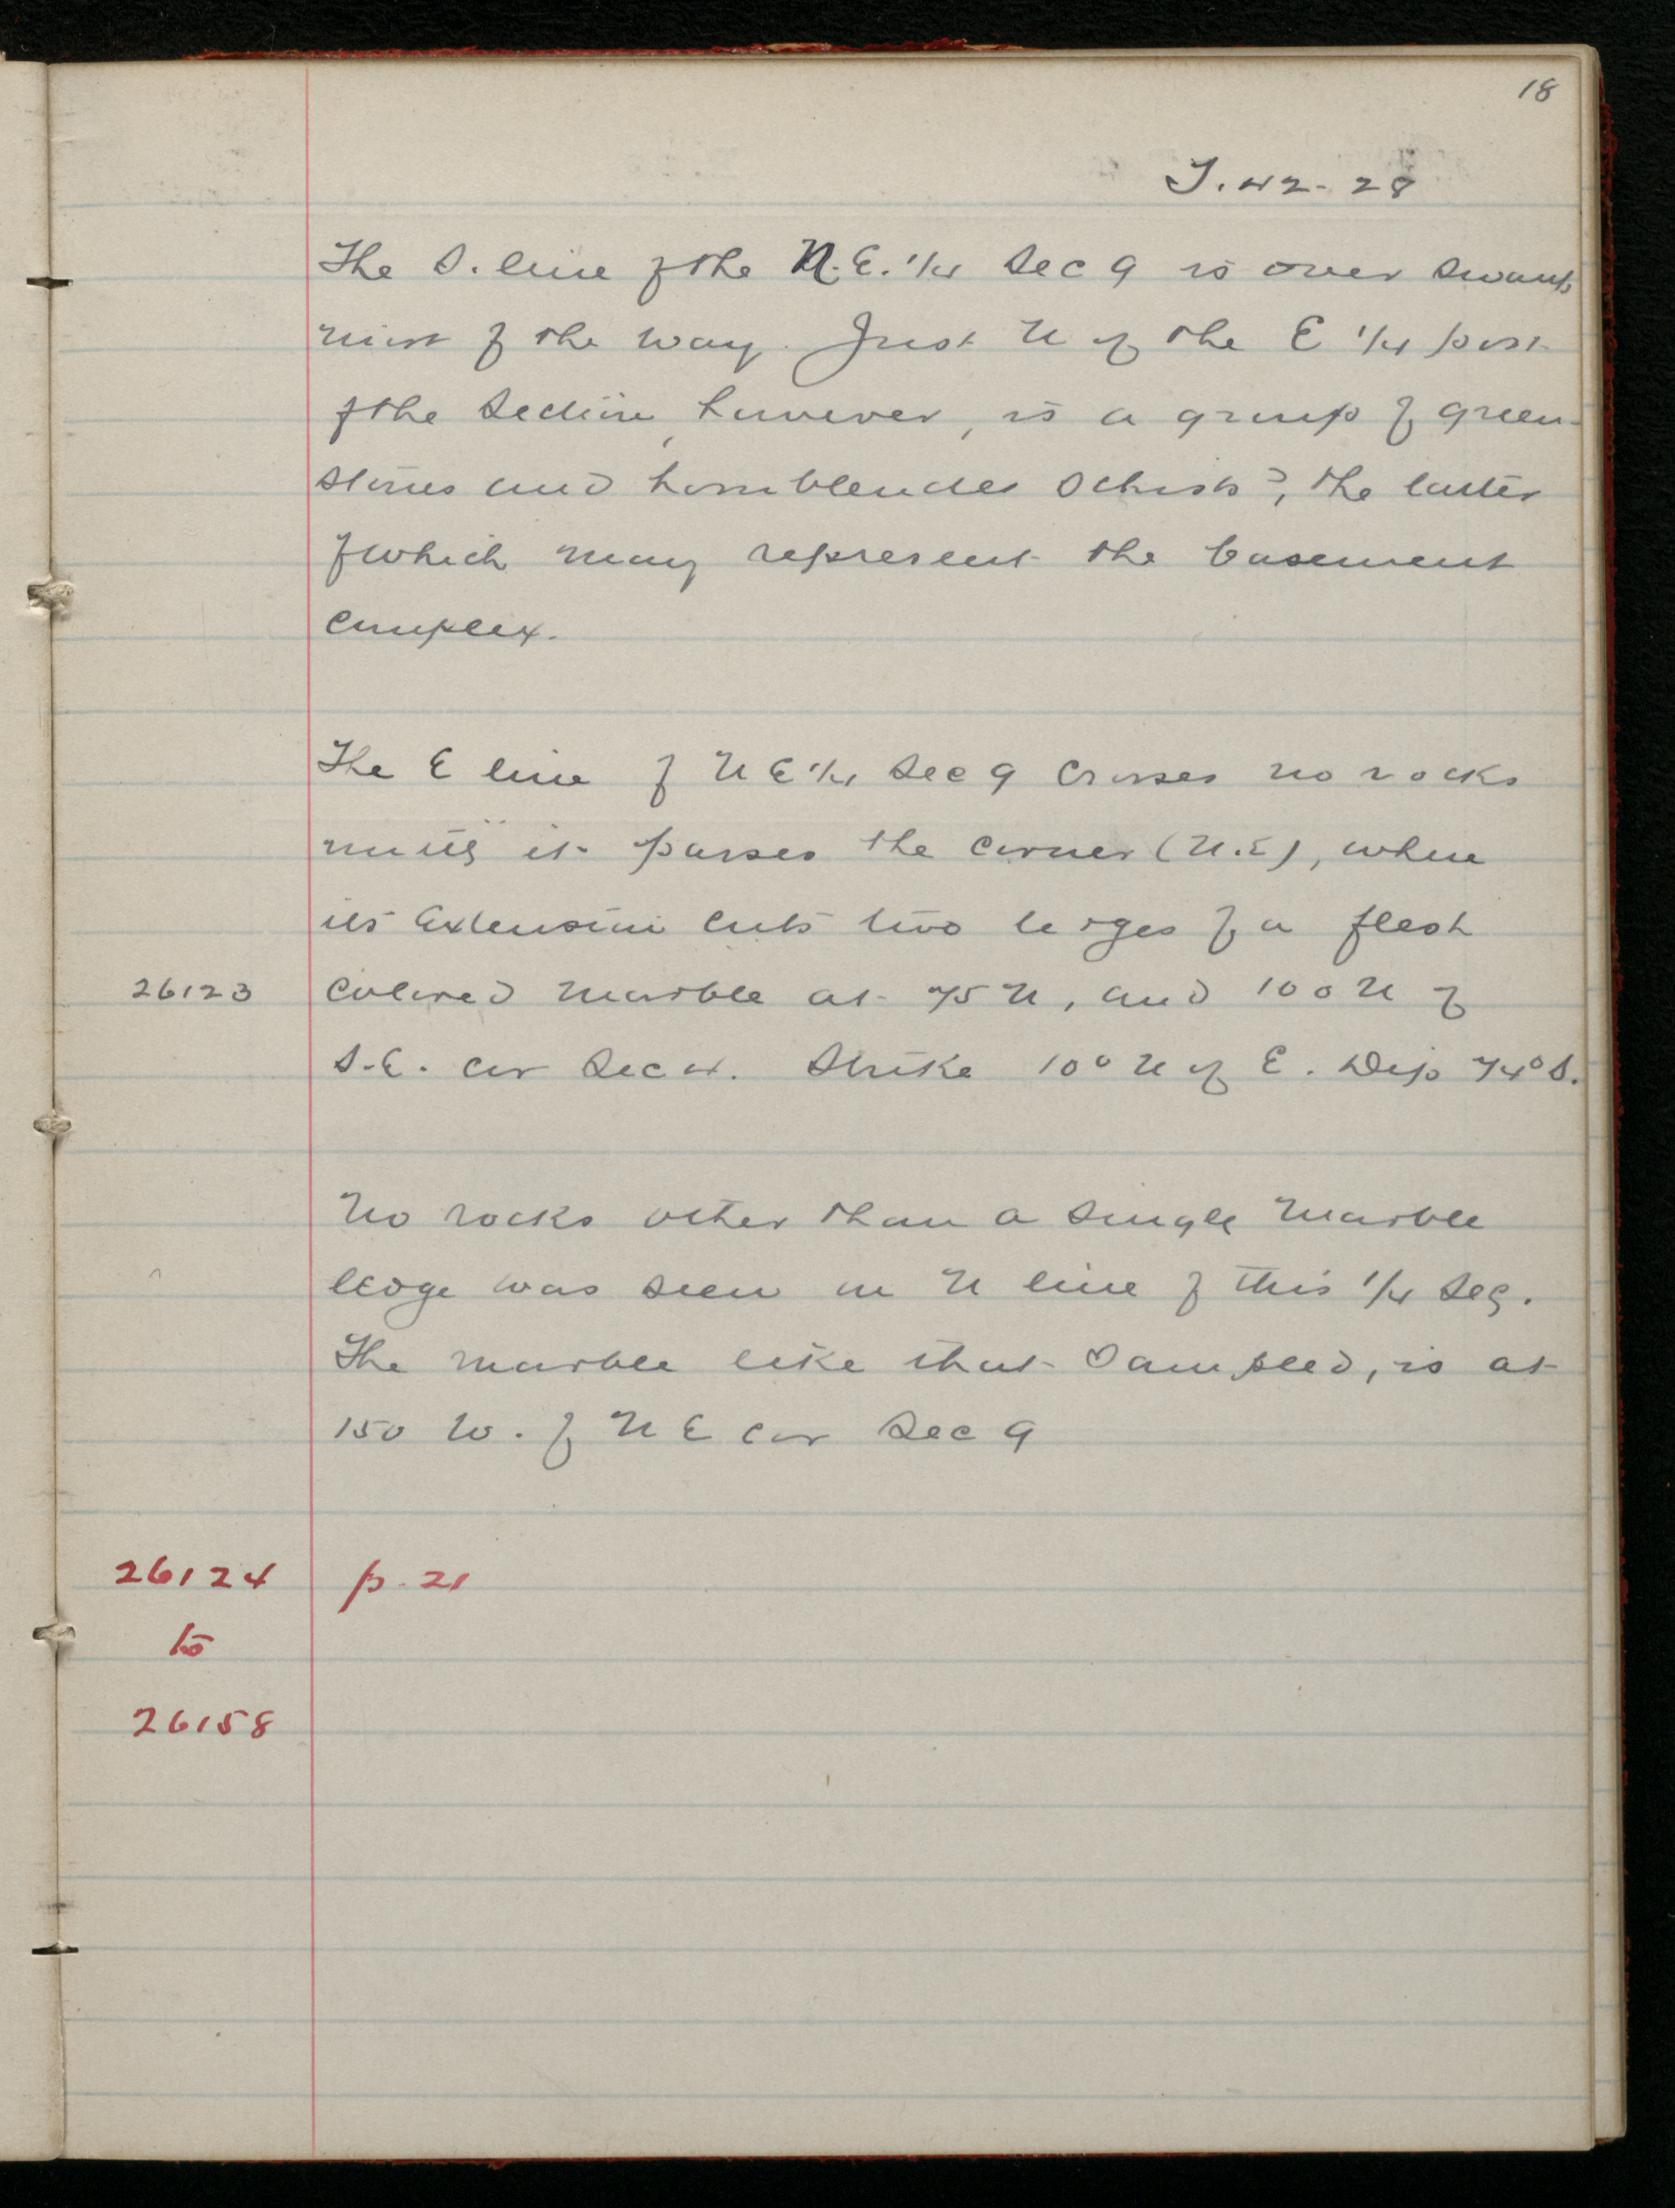 18
T. 42 - 28
The S. line of the N.E. 1/4 Sec 9 is over swamp
most of the way. Just N of the E 1/4 post
of the section, however, is a group of green-
stones and hornblendes schists?, the latter
of which may represent the basement
complex.
The E line of N E 1/4 Sec 9 crosses no rocks
until it passes the corner (N.E), where
its extension cuts two ledges of a flesh
26123 colored marble at 75 N, and 100 N of
S.E. cor Sec 4. Strike 10° N of E. Dip 74° S.
No rocks other than a single marble
ledge was seen on N line of this 1/4 Sec.
The marble like that sampled, is at
150 W. of N E cor Sec 9
26124 p. 21
to
26158